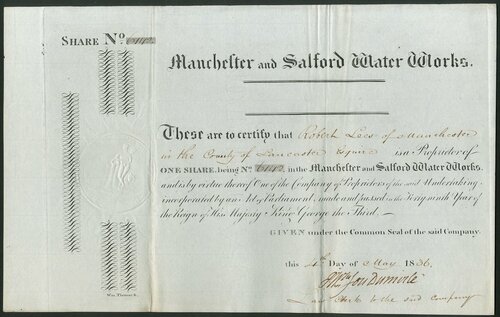 SHARE No.
Manchester and Salford Water Works.
These are to certify that Robert Lees of Manchester
in the County of Lancaster Esquire is a Proprietor of
ONE SHARE, being No. in the Manchester and Salford Water Works,
and is by virtue thereof One of the Company of Proprietors of the said Undertaking,
incorporated by an Act of Parliament, made and passed in the Forty ninth Year of
the Reign of His Majesty King George the Third.
GIVEN under the Common Seal of the said Company,
this 4th Day of May 1836,
Clerk to the said Company